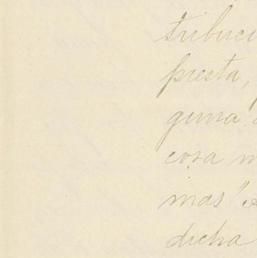 tribuci
presta,
guna
cosa
mas"
dicha